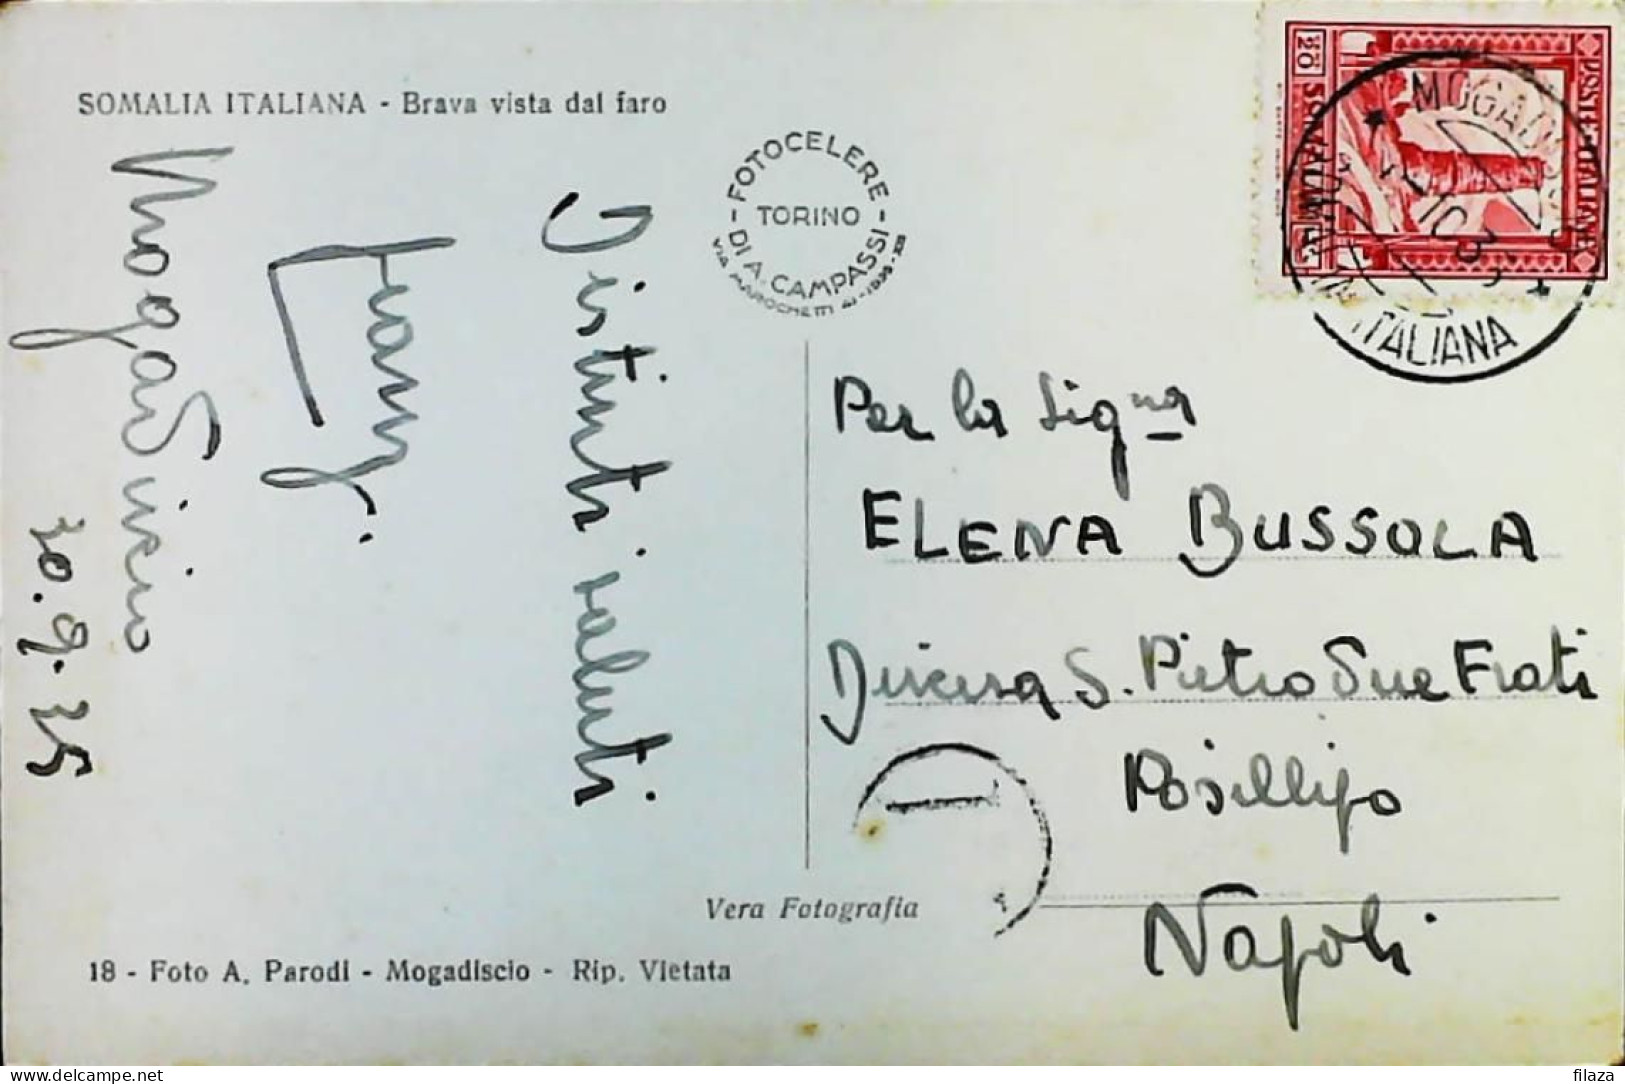 SOMALIA ITALIANA - Brava vista dal faro
FOTOCELERE
TORINO
DI A. CAMPASSI
VIA MAROCHETTI 41 - 1935-XIII
POSTE ITALIANE
SOMALIA
20
MOGADISCIO
ITALIANA
Mogadiscio
30.9.35
Distinti saluti
Per la Signa
ELENA BUSSOLA
Discesa S. Pietro Due Frati
Posillipo
Napoli
Vera Fotografia
18 - Foto A. Parodi - Mogadiscio - Rip. Vietata
filaza